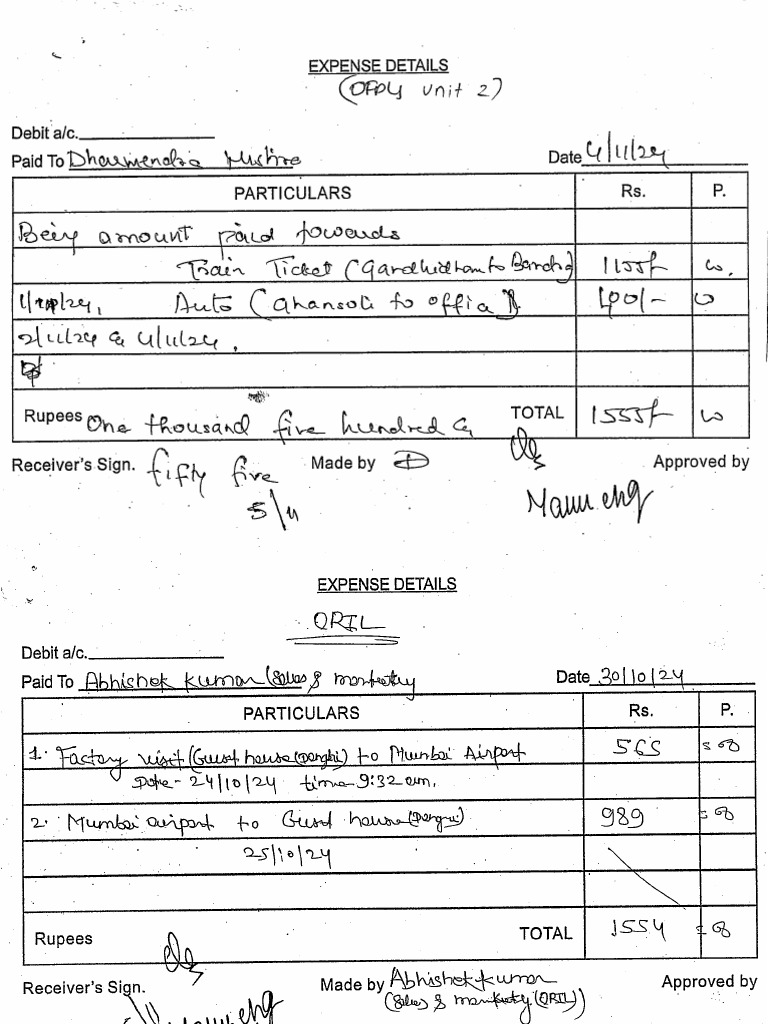 EXPENSE DETAILS
Unit 2)
Debit a/c.
Paid To Dharmendra Date 4/11/24
PARTICULARS Rs. P.
Being amount paid towards
Train Ticket (Gandhidham to Bandra) 1155/-
Auto (Ghansoli to office) 400/-
2/11/24 & 4/11/24,
Rupees One thousand five hundred & TOTAL 1555/-
Receiver's Sign. fifty five Made by Approved by
EXPENSE DETAILS
QRIL
Debit a/c.
Paid To Abhishek Kumar (Sales & Date 30/10/24
PARTICULARS Rs. P.
1. Factory visit (Guest house (Danghi) to Mumbai Airport 565
Date - 24/10/24 time 9:32 am.
2. Mumbai airport to Guest house 989
25/10/24
Rupees TOTAL 1554
Receiver's Sign. Made by Abhishek kumar Approved by
(Sales & (QRIL))